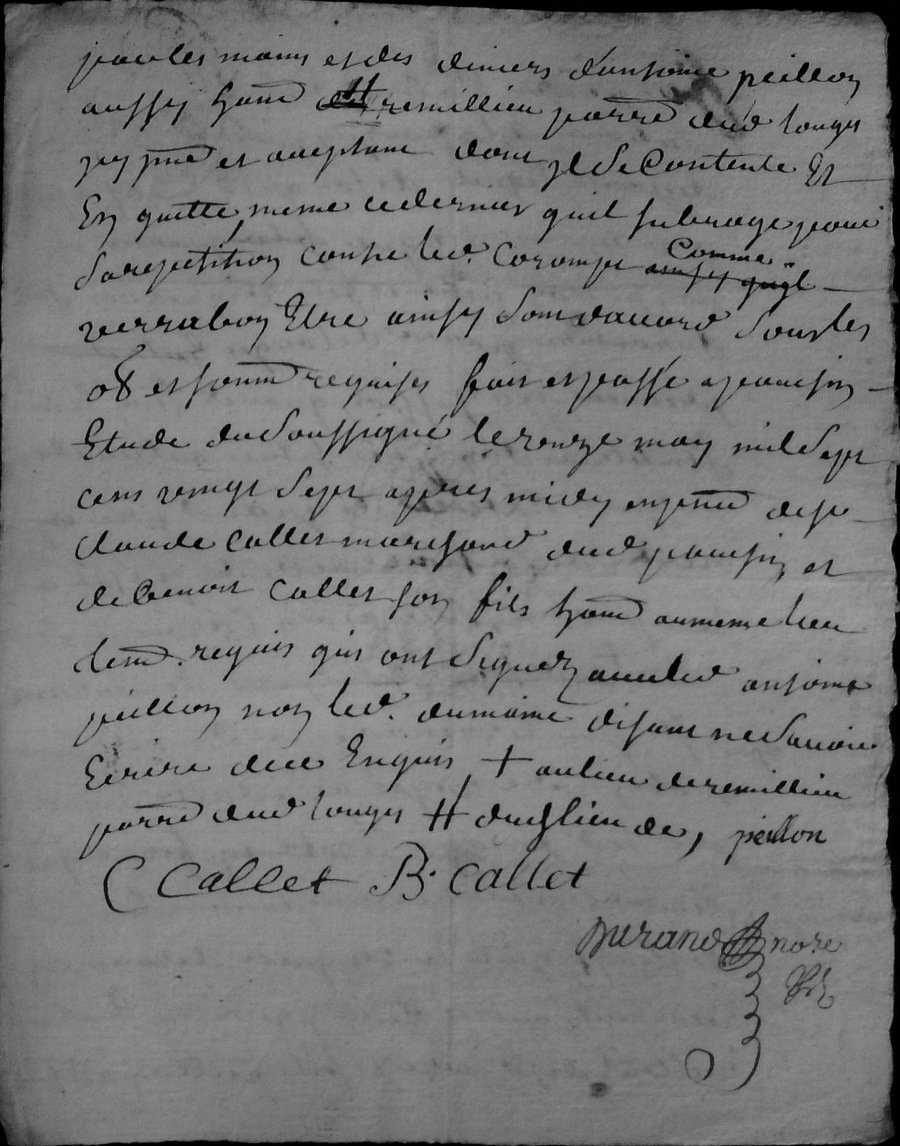 par les mains et des diniers d'antoine peillon
aussy hant # remillieu parre dud longes
icy pnt et aceptant dont jl se Contente Et
En quitte, meme ce dernier quil subroge pour
sa repetition contre led. Coromps Comme ainsy quil
verra bon Etre ainsy Sont daccord Sous les
ob et soum requises fait et passé a pavesin
Etude du Soussigné le onze may mil Sept
cens vingt Sept apres midy en pnce de sr
Claude Callet marchand dud pavesin et
de benoit Callet son fils hant au meme lieu
temt. requis qui ont Signez avec led antoine
peillon non led. dumaine disant ne Savoir
Ecrire de ce Enquis + au lieu de remillieu
parre dud longes # dud lieu de, peillon
C Callet B. Callet
Durand nore